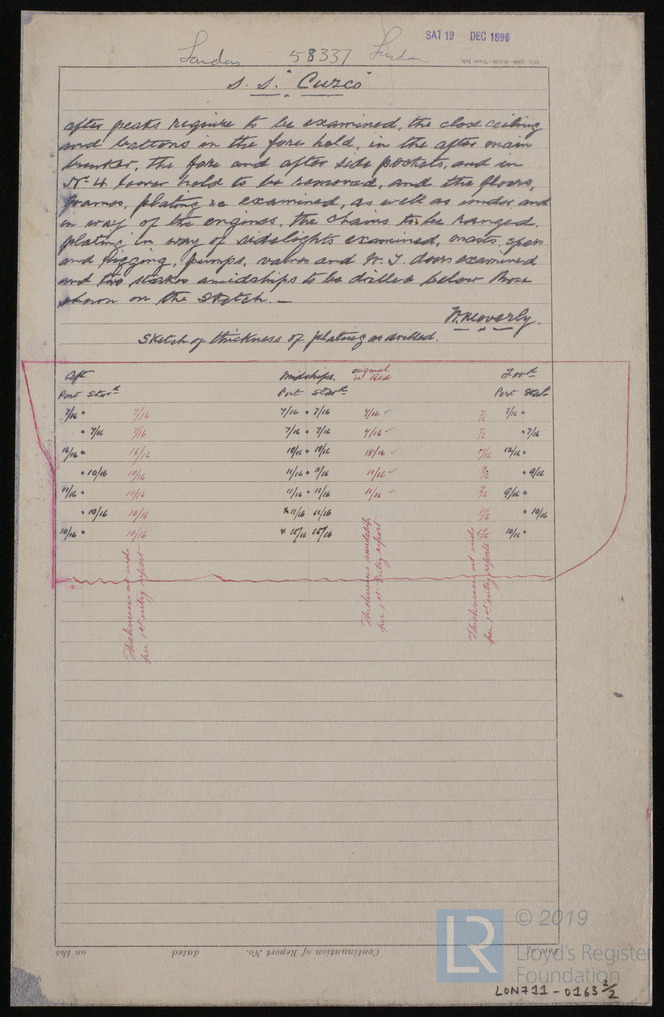 SAT 19 DEC 1896
London 58337 London
S. S. "Cuzco"
after peaks require to be examined, the close ceiling
and battens in the fore hold, in the after main
bunker, the fore and after side pockets, and in
No 4 lower hold to be removed, and the floors,
frames, plating &c examined, as well as under and
in way of the engines, the chains to be ranged,
plating in way of sidelights examined, masts, spars
and rigging, pumps, valves and W. T. doors examined
and two strakes amidships to be drilled below those
shown on the sketch. —
Sketch of thickness of plating as drilled.
Aft Midships. original in Red For'd
Port Starb'd Port Starb'd Port Starb'd
7/16 " 7/16 7/16 " 7/16 7/16 7/16 "
" 7/16 7/16 7/16 " 7/16 9/16 " 7/16
10/16 11/16 " 11/16 11/16 " 9/16
11/16 " 10/16 11/16 " 11/16 11/16 9/16 "
" 10/16 10/16 11/16 11/16 " 10/16
10/16 " 10/16 10/16 10/16 10/16 "
Thickness at ends per 1st entry report
Thickness amidships per 1st entry report
Thickness at ends per 1st entry report
on the dated Continuation of Report No. Port of
© 2019
LR Lloyd's Register
Foundation
LON711-0163 2/2